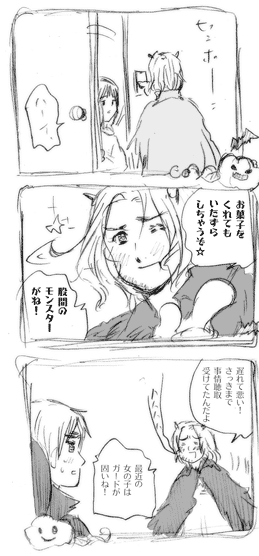 ピンポーン
お菓子を
くれても
いたずら
しちゃうぞ☆
股間の
モンスター
がね!
遅れて悪い!
さっきまで
事情聴取
受けてたんだよ
最近の
女の子は
ガードが
固いね!